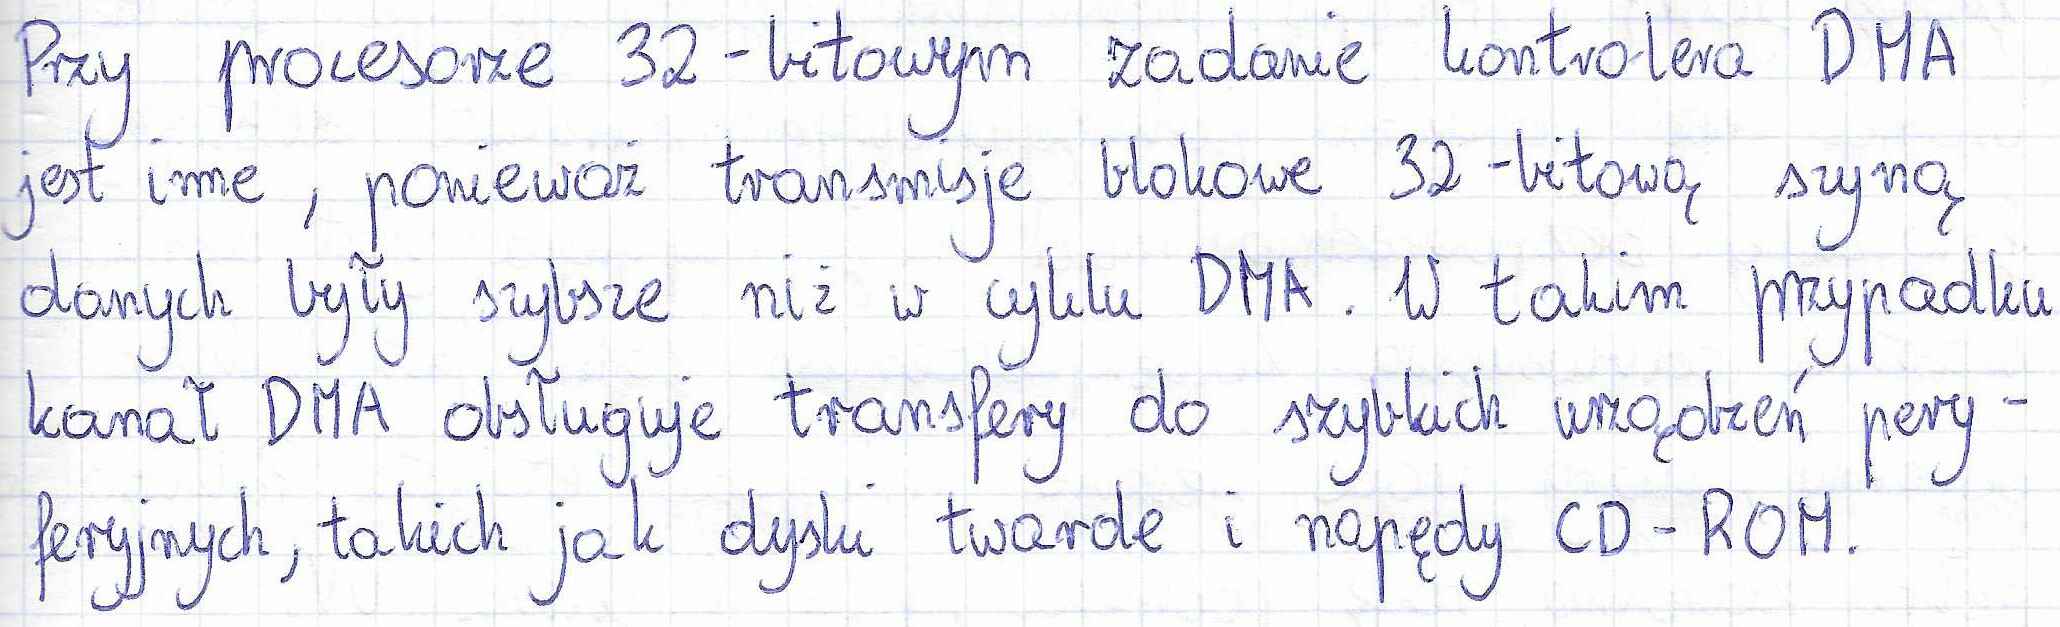 Przy procesorze 32-bitowym zadanie kontrolera DMA
jest inne, ponieważ transmisje blokowe 32-bitową szyną
danych były szybsze niż w cyklu DMA. W takim przypadku
kanał DMA obsługuje transfery do szybkich urządzeń pery-
feryjnych, takich jak dyski twarde i napędy CD-ROM.